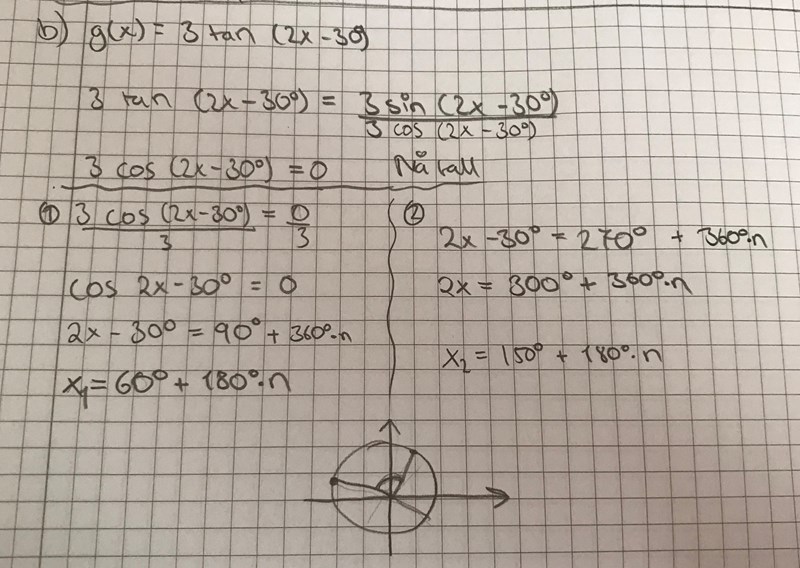 b) g(x) = 3 tan (2x-30)
3 tan (2x-30°) = 3 sin (2x-30°) / 3 cos (2x-30°)
3 cos (2x-30°) = 0
① 3 cos (2x-30°) / 3 = 0 / 3
cos 2x-30° = 0
2x - 30° = 90° + 360°·n
x₁ = 60° + 180°·n
②
2x -30° = 270° + 360°·n
2x = 300° + 360°·n
x₂ = 150° + 180°·n